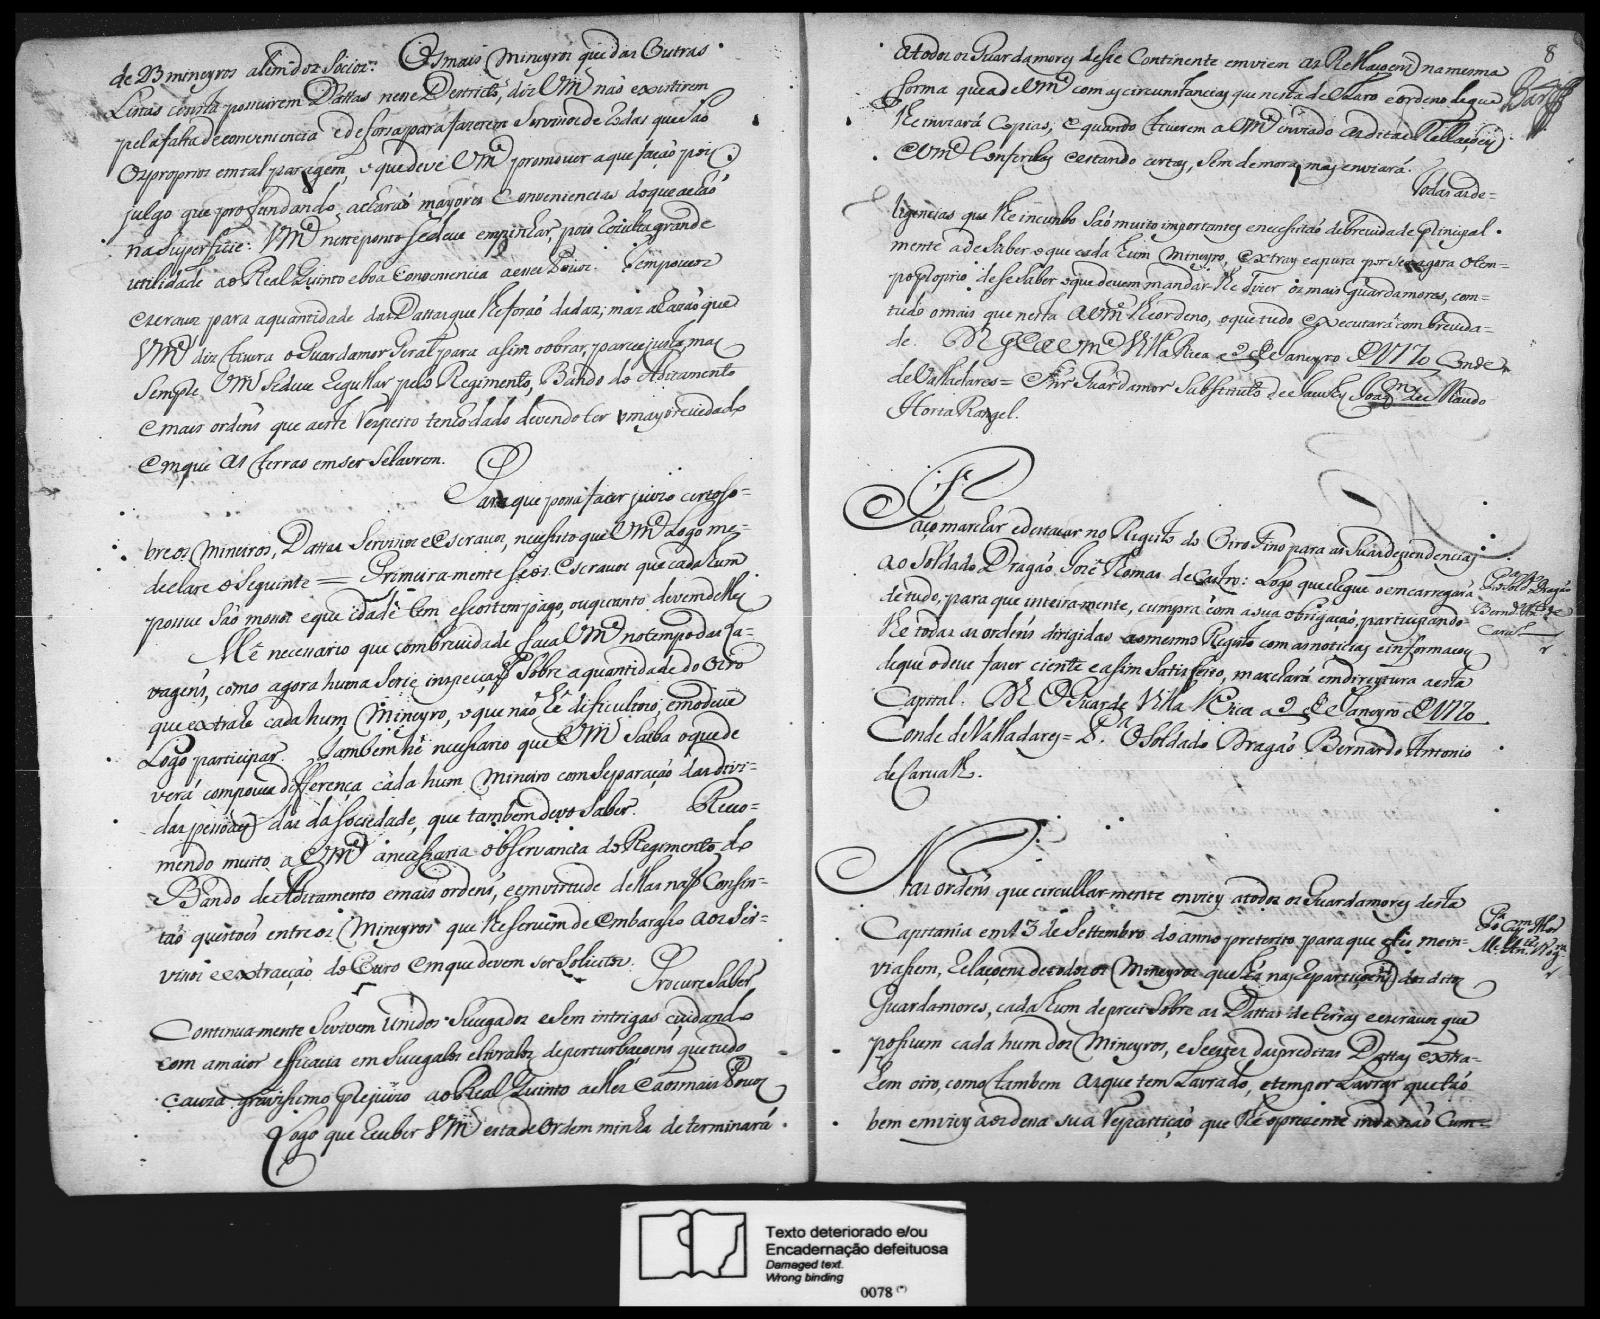 de 23 mineyros alem dos Socios. Os mais Mineyros que das Outras
Listas consta possuirem Dattas nesse Destricto, diz Vm.ce não existirem
pela falta de conveniencia e de forsa para fazerem Servissos de Rodas que são
Os proprios em tal paragem, o que deve Vm.ce promover a que fação pois
julgo que profundando, acharaõ mayores Conveniencias do que achaõ
na Superficie: Vm.ce neste ponto se deve empenhar, pois rezulta grande
utilidade ao Real Quinto e boa Conveniencia a esses Povos. Tem poucos
Escravos para a quantidade das Dattas que lhe foraõ dadas; mas a razaõ que
Vm.ce diz tivera o Guardamor Geral para asim o obrar, parece justa, mas
Sempre Vm.ce Se deve regullar pelo Regimento, Bando do Aditamento
e mais ordens que a este respeito tenho dado devendo ter o mayor cuidado
em que as terras em ser se lavrem.
Para que possa fazer juizo certo so=
bre os Mineiros, Dattas Servisos e Escravos, necessito que Vm.ce Logo me
declare o Seguinte = Primeiramente se os Escravos que cada hum
possue são mossos e que idade tem e se os tem pago, ou quanto devem delles
Hé necessario que com brevidade faça Vm.ce no tempo das La=
vagens, como agora huma Seria inspeçaõ Sobre a quantidade do Oiro
que extrahe cada hum Mineyro, o que naõ hé dificultozo, e mo deve
Logo participar. Tambem hé necessario que Vm.ce Saiba o que de
verá com pouca differença cada hum Mineiro com Separaçaõ das divi=
das pessoaes das da sociedade, que tambem devo Saber. Reco=
mendo muito a Vm.ce a necessaria observancia do Regimento do
Bando de Aditamento e mais ordens, e em virtude dellas naõ Consin=
taõ questoes entre os Mineyros que lhe servem de Embarasso aos Ser=
vissos e extracçaõ do Ouro em que devem ser Solicitos.
Procure Saber
Continuamente Se vivem Unidos Sucegados e Sem intrigas cuidando
com a maior efficacia em Sucegalos e livralos de perturbaçoens que tudo
cauza gravissimo prejuizo ao Real Quinto a elles e aos mais Povos
Logo que receber Vm.ce esta de Ordem minha determinará
8
a todos os Guardamores desse Continente enviem as Rellaçoens na mesma
forma que a de Vm.ce com as circunstancias que nesta declaro e ordeno de que
lhe inviará Copias, e quando tiverem a Vm.ce enviado as ditas Rellaçoens
Vm.ce Conferilas e estando certas, Sem demora mas enviará.
Todas as de=
ligencias que lhe incumbo Saõ muito importantes e necessitaõ de brevidade Principal=
mente a de Saber o que cada hum Mineyro, extray e apura por ser agora o tem=
po proprio de se Saber o que devem mandar-lhe dizer os mais guardamores, con=
tudo o mais que nesta a Vm.ce lhe ordeno, o que tudo executará com brevida=
de. D.s G.e a Vm.ce Villa Rica a 9 de Janeyro de 1770 Conde
de Valladares = Snr Guardamor Substituto de
Horta Rangel.
Faço marchar e destacar no Registo do Oiro Fino para as Suas dependencias
ao Soldado Dragaõ Joze Thomas de Castro: Logo que chegue o encarregará
de tudo, para que inteiramente, cumpra com a sua obrigaçaõ, participando-
lhe todas as ordens dirigidas ao mesmo Registo com as noticias e informaçoes
de que o deve fazer ciente e asim Satisfeito, marchará em direytura a esta
Capital. D.s G.e Villa Rica a 9 de Janeyro de 1770
Conde de Valladares = P.a O Soldado Dragaõ Bernardo Antonio
de Carvalho.
P.a o Sold.o Dragão
Bern.do Ant.o de
Carv.o
Nas ordens que circullarmente enviey a todos os Guardamores desta
Capitania em 13 de Settembro do anno preterito para que me in=
viassem, Relaçoens de todos os Mineyros que ha nas Repartiçoens dos ditos
Guardamores, cada hum de per si Sobre as Dattas de terras e escravos que
possuem cada hum dos Mineyros, e Se das preditas Dattas extra=
hem oiro, como tambem as que tem Lavrado, e tem por Lavrar que taõ
bem enviey a ordem a sua Repartiçaõ que lhé o prezente inda naõ Cum=
Texto deteriorado e/ou
Encadernação defeituosa
Damaged text.
Wrong binding
0078 (*)